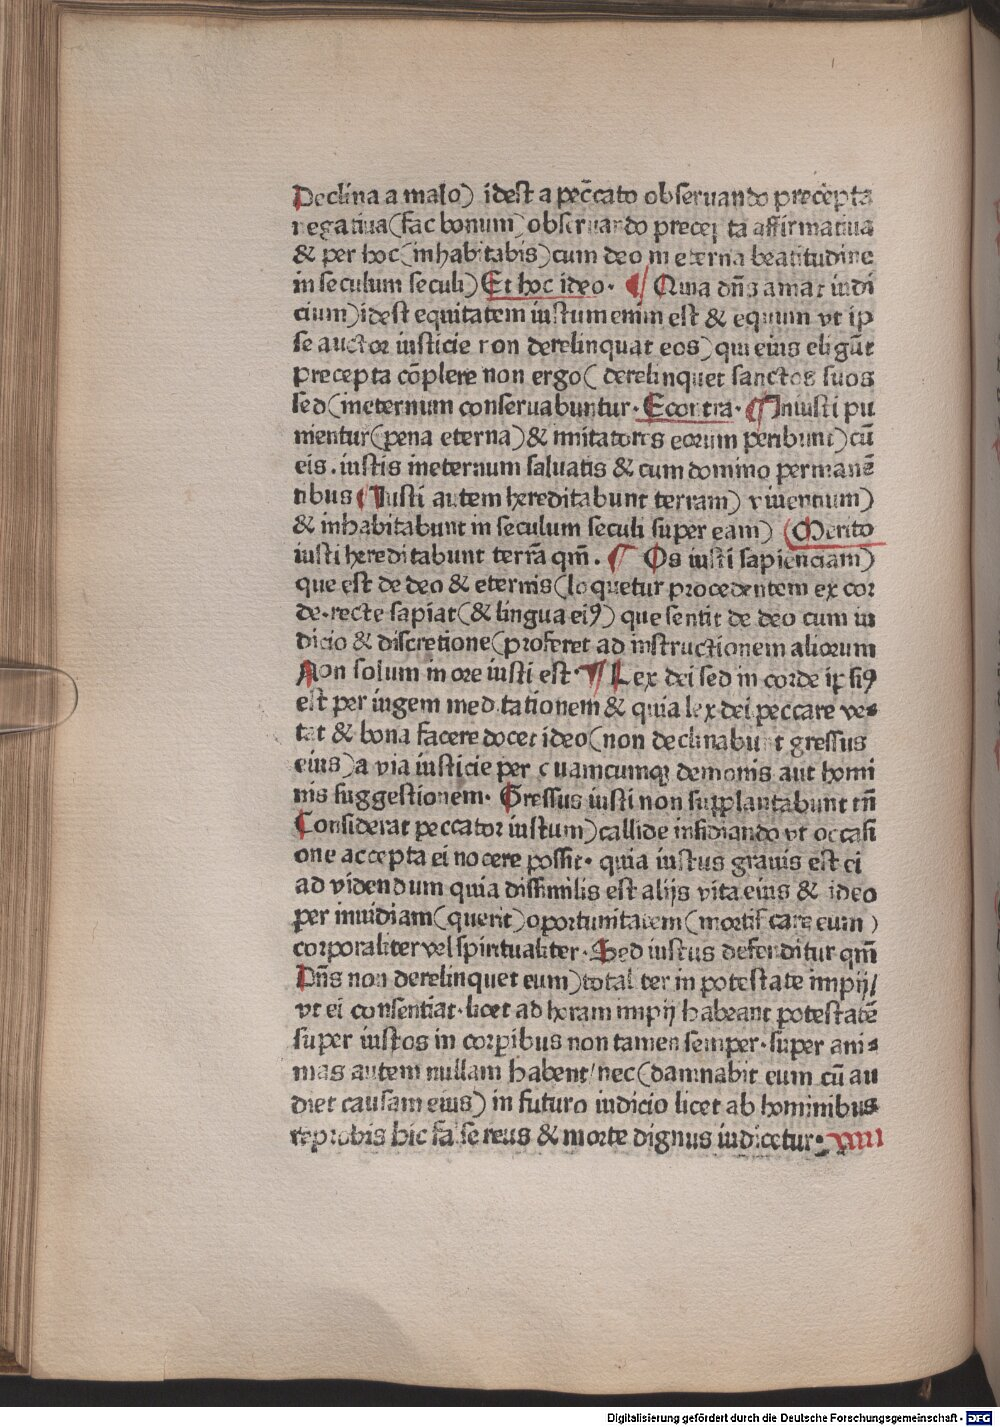 Declina a malo) idest a peccato obseruando precepta
negatiua(fac bonum)obseruando precepta affirmatiua
& per hoc(inhabitabis)cum deo in eterna beatitudine
in seculum seculi)Et hoc ideo· ¶ Quia dn̄s amat iudi
cium)idest equitatem iustum enim est & equum vt ip
se auctor iusticie non derelinquat eos)qui eius eligūt
precepta cōplere non ergo( derelinquet sanctos suos
sed(ineternum conseruabuntur· Econtra· ¶Iniusti pu
nientur(pena eterna)& imitatores eorum peribunt)cū
eis.iustis ineternum saluatis & cum domino permanē
tibus(Iusti autem hereditabunt terram) viuentium)
& inhabitabunt in seculum seculi super eam) (Merito
iusti hereditabunt terrā qm̄. ¶ Os iusti sapienciam)
que est de deo & eternis(loquetur procedentem ex cor
de·recte sapiat(& lingua eiꝰ)que sentit de deo cum iu
dicio & discretione(proferet ad instructionem aliorum
Non solum in ore iusti est·¶ Lex dei sed in corde ipsiꝰ
est per iugem meditationem & quia lex dei peccare ve⸗
tat & bona facere docet ideo(non declinabunt gressus
eius)a via iusticie per quamcumqꝫ demonis aut homi
nis suggestionem· Gressus iusti non supplantabunt tn̄
Considerat peccator iustum)callide insidiando vt occasi
one accepta ei nocere possit· quia iustus grauis est ei
ad videndum quia dissimilis est alijs vita eius & ideo
per inuidiam(querit)oportunitatem(mortificare eum)
corporaliter vel spiritualiter·Sed iustus defenditur qm̄
Dn̄s non derelinquet eum)totaliter in potestate impij/
vt ei consentiat·licet ad horam impij habeant potestatē
super iustos in corpibus non tamen semper·super ani⸗
mas autem nullam habent/nec(damnabit eum cū au
diet causam eius) in futuro iudicio licet ab hominibus
reprobis hic false reus & morte dignus iudicetur·
Digitalisierung gefördert durch die Deutsche Forschungsgemeinschaft - DFG